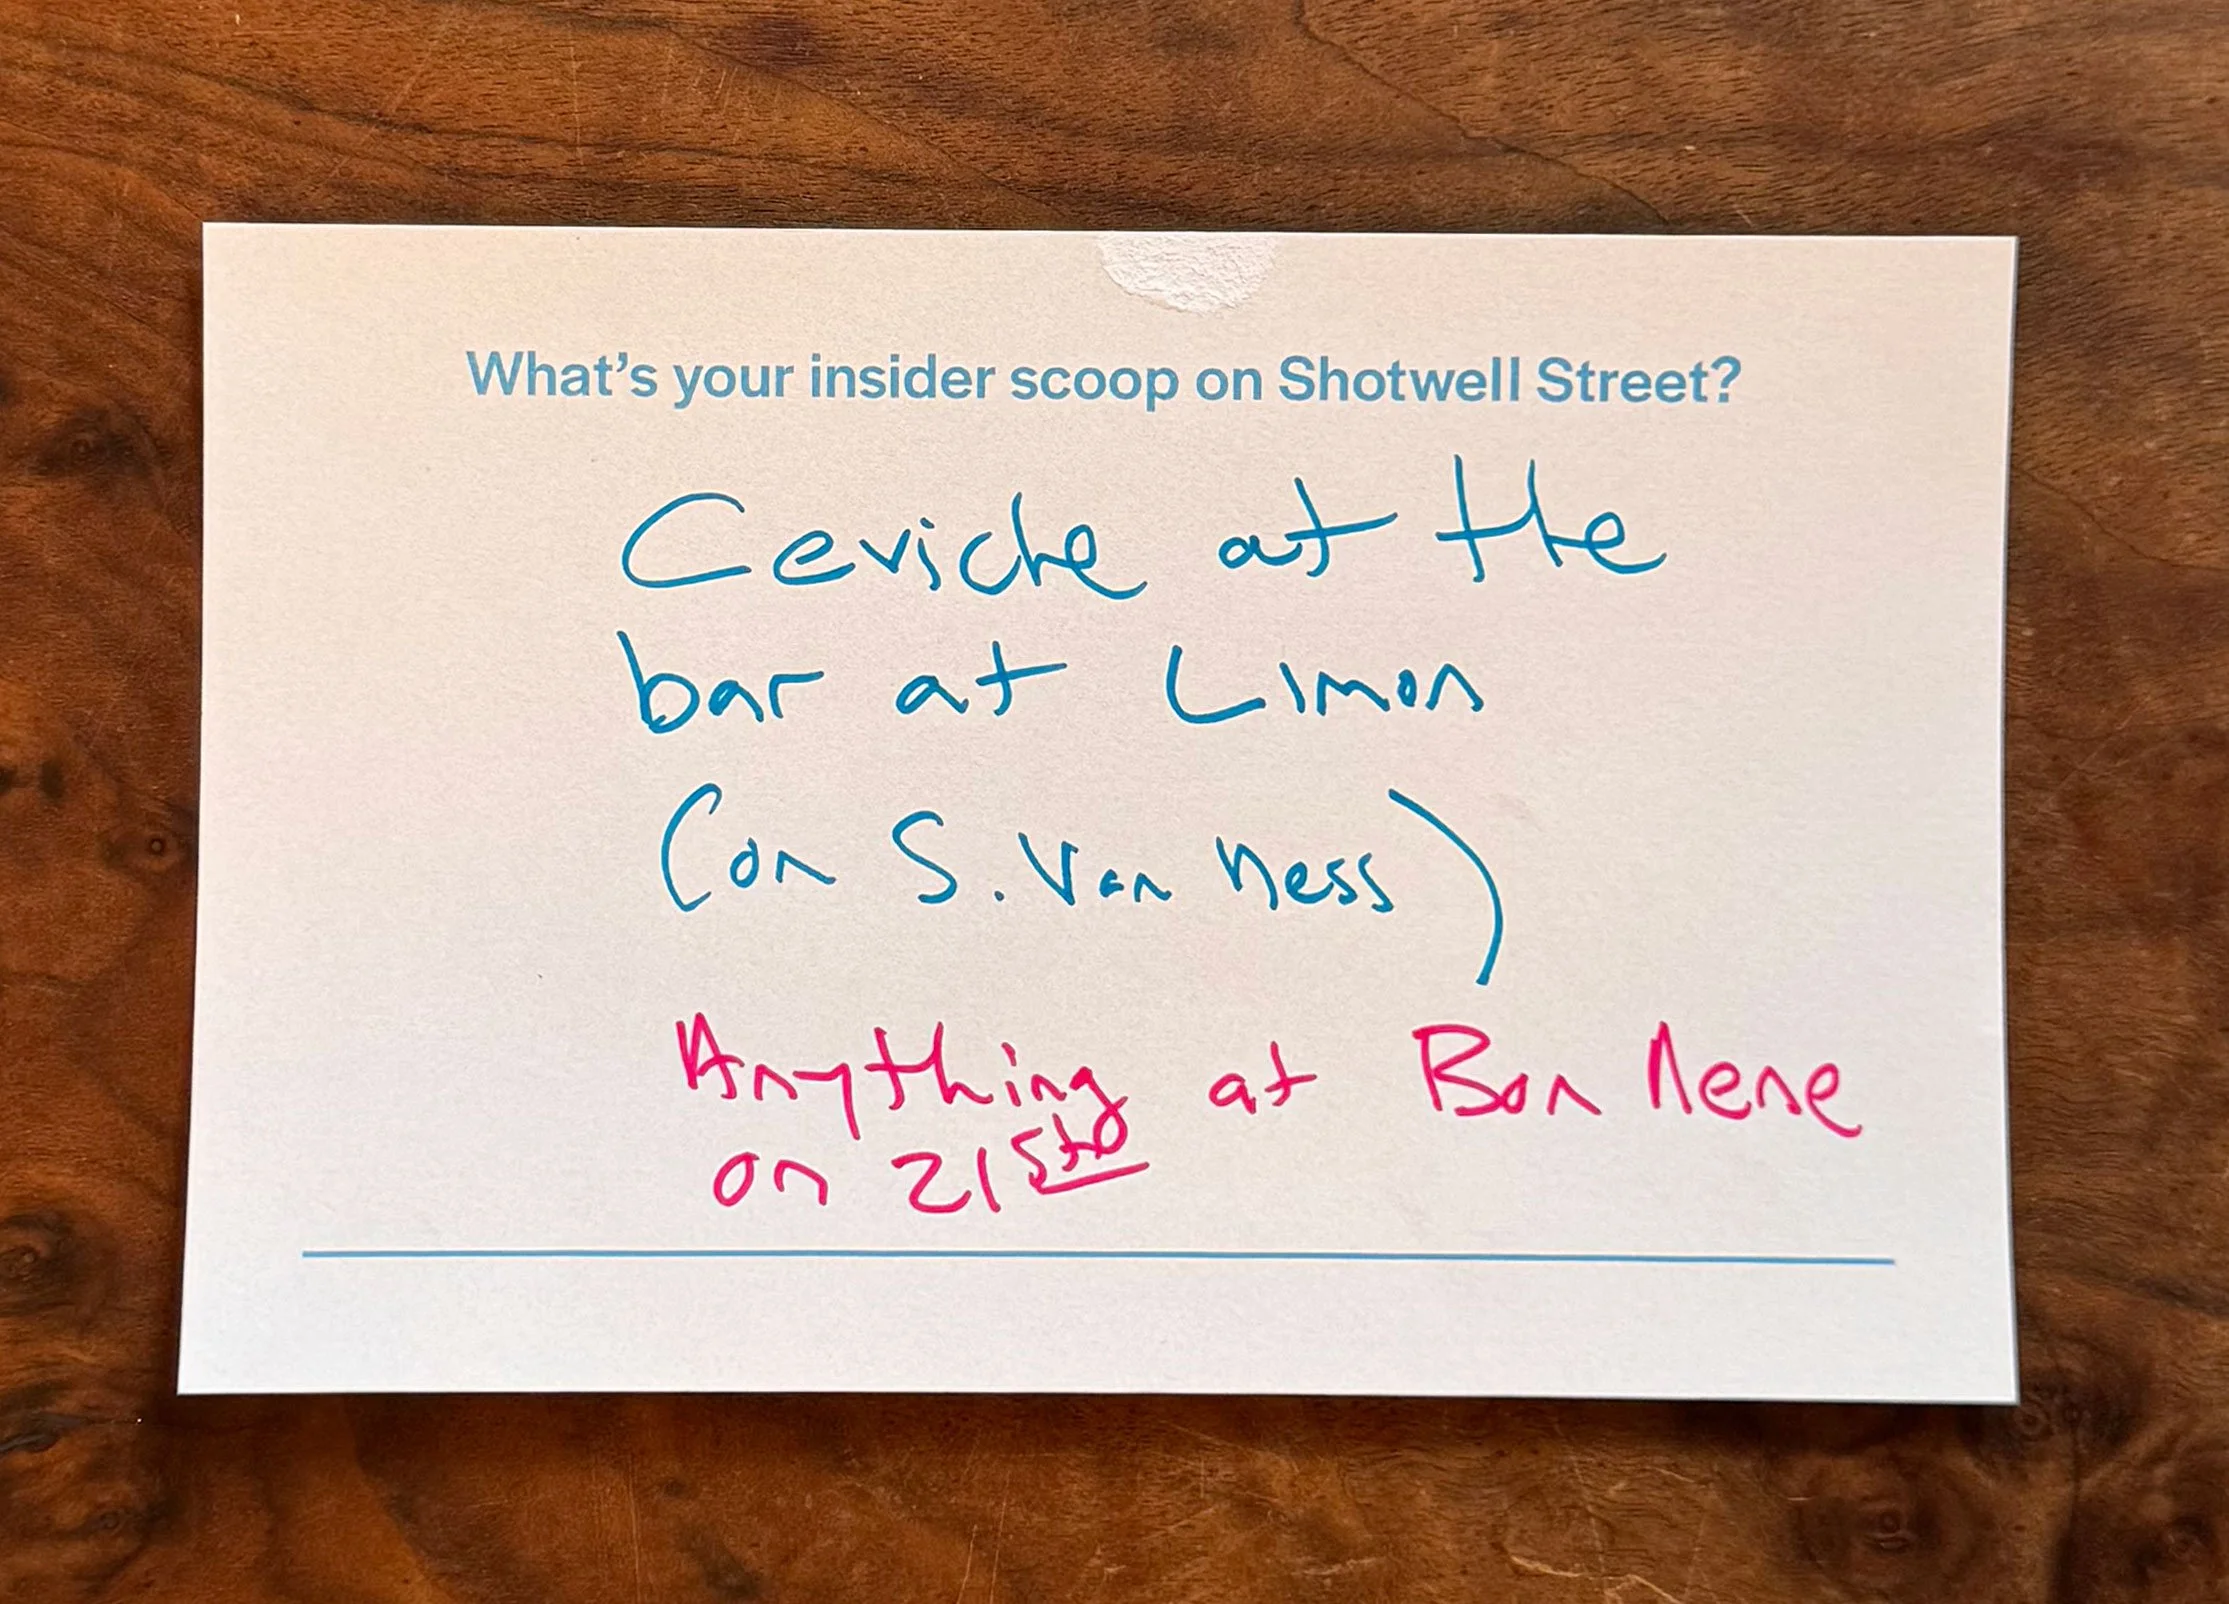 What's your insider scoop on Shotwell Street?
Ceviche at the
bar at Limon
(on S. Van Ness)
Anything at Bon Nene
on 21st